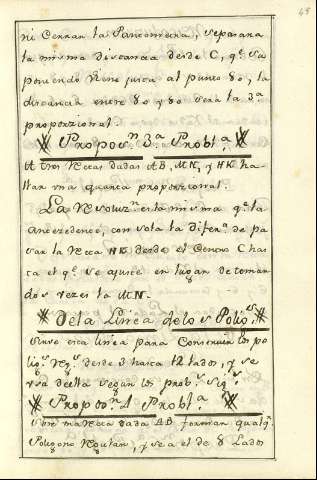 45
ni Cerrar la Pantometra, separara
la misma distancia desde C, qᵉ. su
poniendo viene justa al punto 80, la
distancia entre 80 y 80 será la 3ª.
proporzional.
Propoⁿ. 3ª. Probl.ª
A tres rectas dadas AB, MN, y HK ha-
llar una quarta proporzional.
La Resoluzⁿ. es la misma qᵉ. la
antezedente, con sola la diferⁿ. de pa
sar la recta HK desde el Centro C has
ta el qᵉ. se ajuste en lugar de toman
dos vezes la MN.
De la Linea de los Poligˢ.
Sirve esta linea para Construir los po
ligˢ. Regˢ. desde 3 hasta 12 lados, y se
usa de ella segun los probˢ. sigˢ.
Propoⁿ. 1 Probl.ª
Sobre una recta dada AB formar qualqʳ.
Poligono Regular, y sea el de 8 Lados